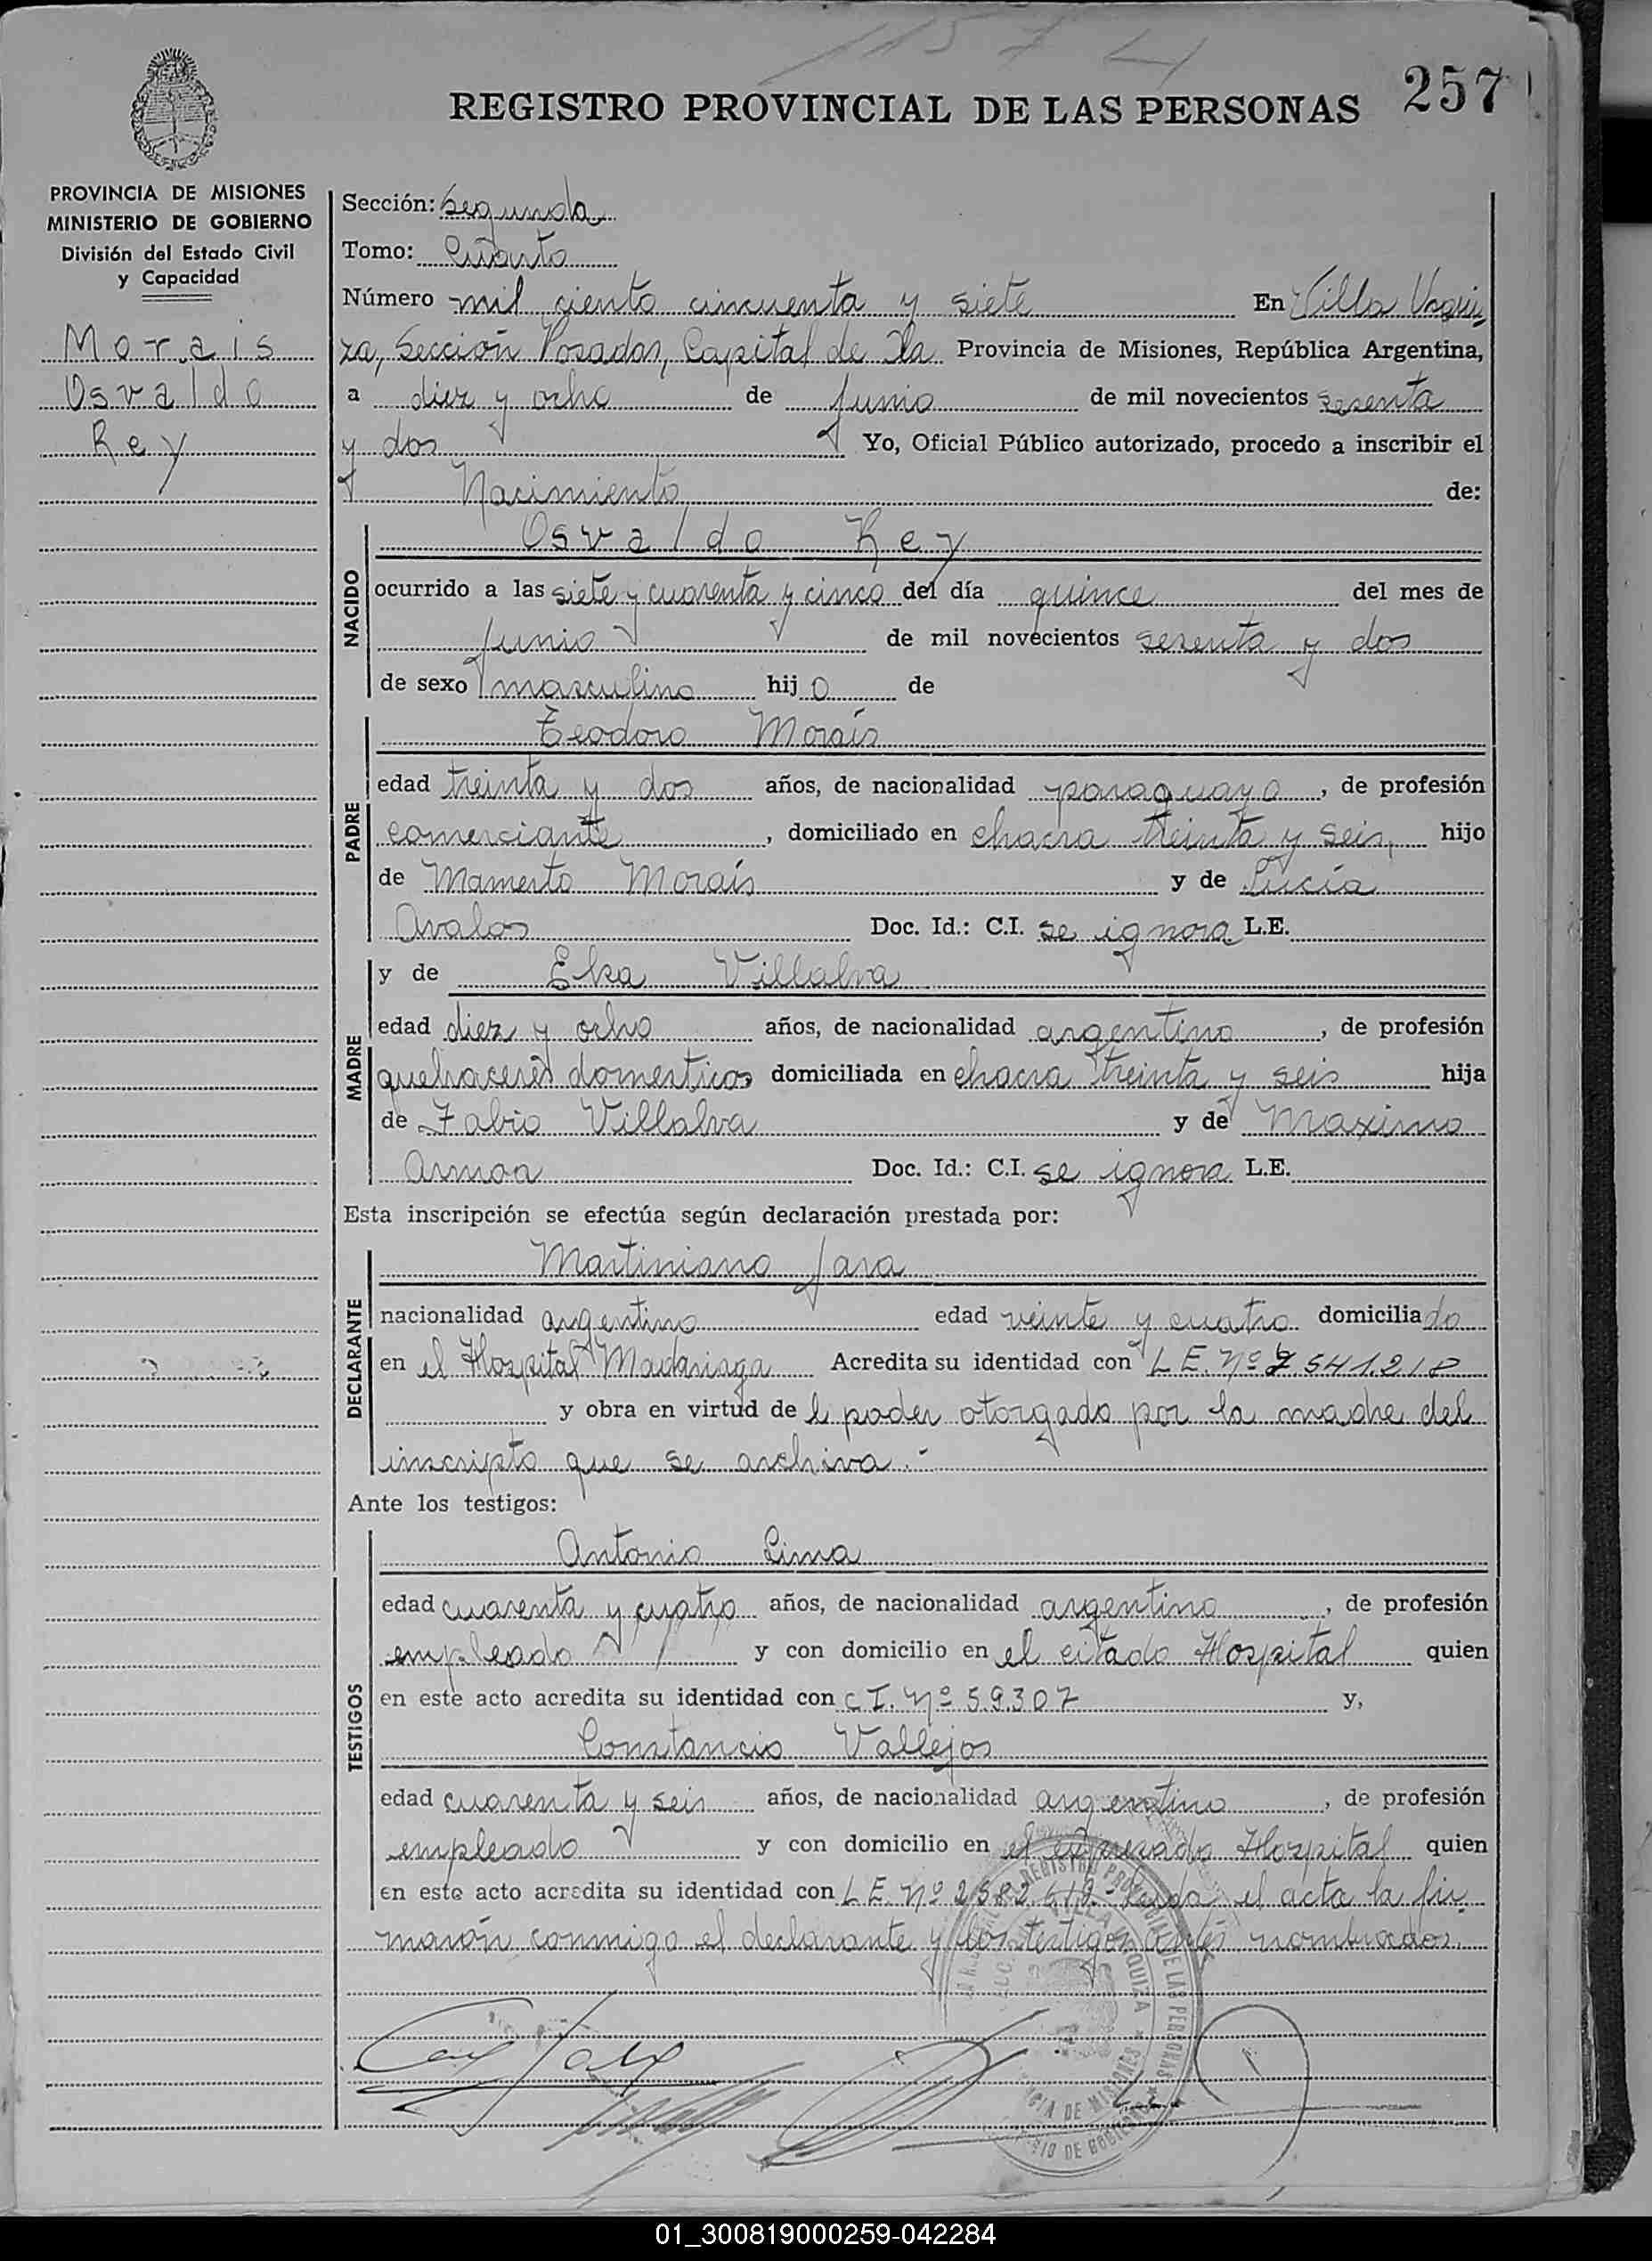 1157
257
REGISTRO PROVINCIAL DE LAS PERSONAS
PROVINCIA DE MISIONES
MINISTERIO DE GOBIERNO
División del Estado Civil
y Capacidad
Morais
Osvaldo
Rey
Sección: Segunda
Tomo: Cuarto
Número mil ciento cincuenta y siete En Villa Urqui
za, Sección Posadas, Capital de la Provincia de Misiones, República Argentina,
a diez y ocho de Junio de mil novecientos sesenta
y dos Yo, Oficial Público autorizado, procedo a inscribir el
Nacimiento de:
NACIDO
Osvaldo Rey
ocurrido a las siete y cuarenta y cinco del día quince del mes de
Junio de mil novecientos sesenta y dos
de sexo masculino hijo de
PADRE
Teodoro Morais
edad treinta y dos años, de nacionalidad paraguayo, de profesión
comerciante, domiciliado en chacra treinta y seis, hijo
de Mamerto Morais y de Lucía
Avalos Doc. Id.: C.I. se ignora L.E.
MADRE
y de Villalva
edad diez y ocho años, de nacionalidad argentino, de profesión
quehaceres domesticos domiciliada en chacra treinta y seis hija
de Fabio Villalva y de Maxima
Armoa Doc. Id.: C.I. se ignora L.E.
Esta inscripción se efectúa según declaración prestada por:
DECLARANTE
Martiniano Jara
nacionalidad argentino edad veinte y cuatro domiciliado
en el Hospital Madariaga Acredita su identidad con L.E. Nº 7.541.218
y obra en virtud de l poder otorgado por la madre del
inscripto que se archiva.-
Ante los testigos:
TESTIGOS
Antonio Lima
edad cuarenta y cuatro años, de nacionalidad argentino, de profesión
empleado y con domicilio en el citado Hospital quien
en este acto acredita su identidad con C.I. Nº 59.307 y,
Constancio Vallejos
edad cuarenta y seis años, de nacionalidad argentino, de profesión
empleado y con domicilio en el expresado Hospital quien
en este acto acredita su identidad con L.E. Nº Leida el acta la fir
marón conmigo el declarante y los testigos antes nombrados.
REGISTRO PROVINCIAL DE LAS PERSONAS
VILLA URQUIZA
01_300819000259-042284